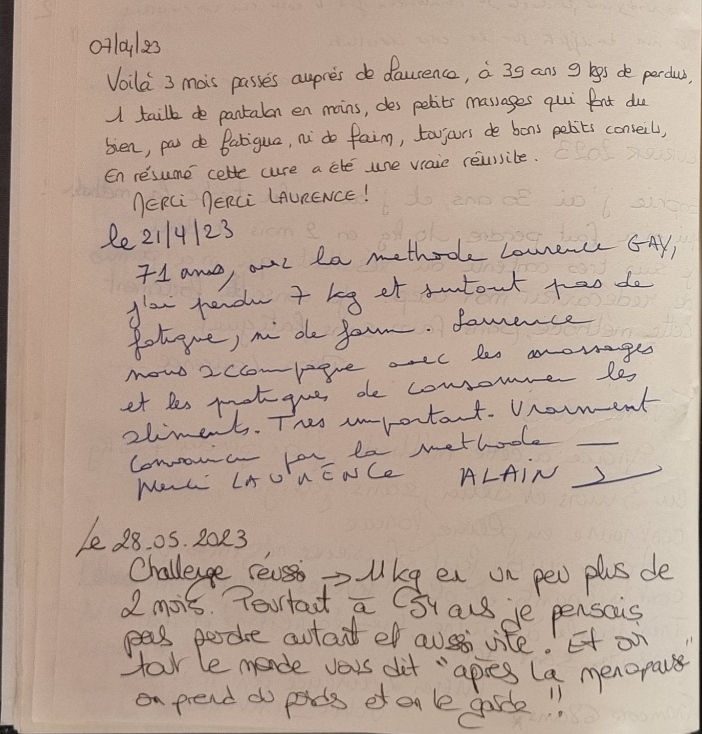 07/04/23
Voilà 3 mois passés auprès de Laurence, à 39 ans 9 kgs de perdus,
1 taille de pantalon en moins, des petits massages qui font du
bien, pas de fatigue, ni de faim, toujours de bons petits conseils,
En résumé cette cure a été une vraie réussite.
MERCI MERCI LAURENCE !
le 21/4/23
71 ans, avec la methode Laurence GAY,
j'ai perdu 7 kg et surtout pas de
fatigue, ni de faim. Laurence
nous accompagne avec les massages
et les pratiques de consommer les
aliments. Tres important. Vraiment
convaincu par la methode —
Merci LAURENCE ALAIN
Le 28.05.2023
Challenge réussi → 11 kg en un peu plus de
2 mois. Pourtant à 54 ans je pensais
pas perdre autant et aussi vite. Et on
tout le monde vous dit "après la menopause"
on prend du poids et on le garde !!